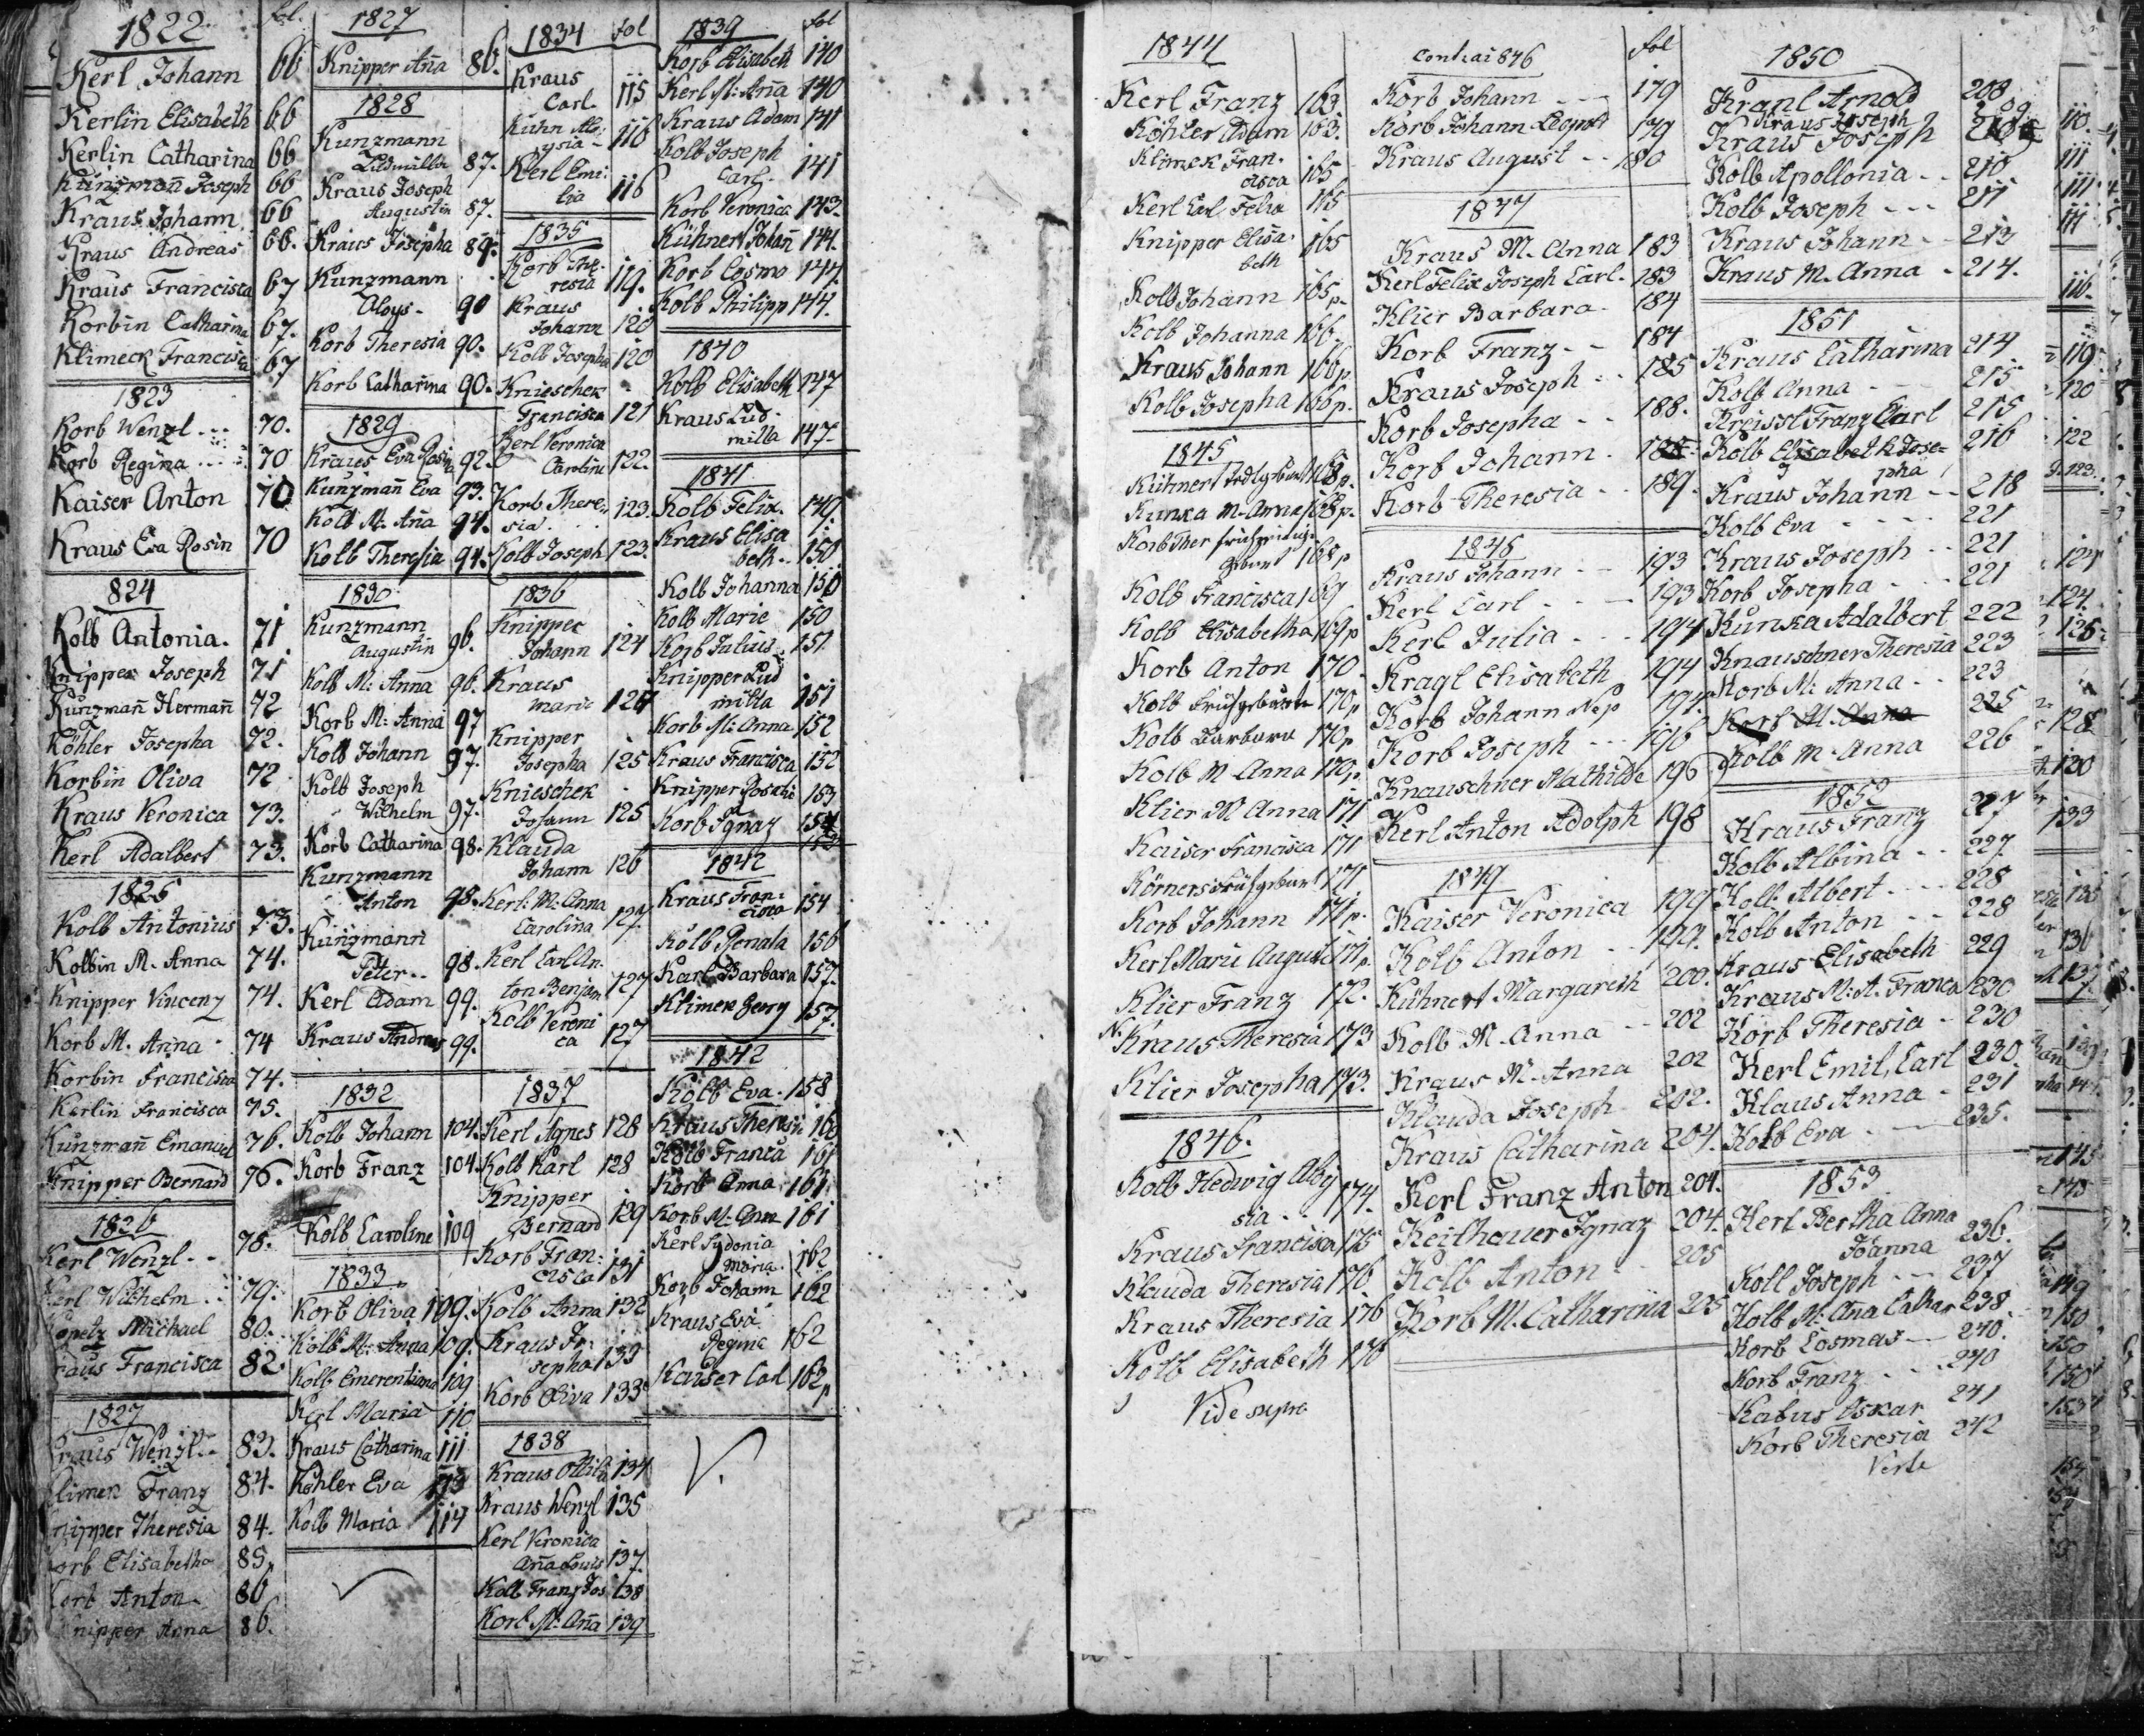 1822 fol.
Kerl Johann 66
Kerlin Elisabeth 66
Kerlin Catharina 66
Kunzmañ Joseph 66
Kraus Johann 66
Kraus Andreas 66.
Kraus Francisca 67
Korbin Catharina 67.
Klimeck Francisca 67
1823
Korb Wenzl 70.
Korb Regina 70
Kaiser Anton 70
Kraus Eva Rosin 70
824
Kolb Antonia. 71
Knipper Joseph 71
Kunzmañ Hermañ 72
Köhler Josepha 72.
Korbin Oliva 72
Kraus Veronica 73.
Kerl Adalbert 73.
1825
Kolb Antonius 73.
Kolbin M. Anna 74.
Knipper Vincenz 74.
Korb M. Anna 74
Korbin Francisca 74.
Kerlin Francisca 75.
Kunzmañ Emanuel 76.
Knipper Bernard 76.
1826
Kerl Wenzl 78.
Kerl Wilhelm 79.
Kopetz Michael 80.
Kraus Francisca 82
1827
Kraus Wenzl 83.
Klimen Franz 84.
Knipper Theresia 84.
Korb Elisabetha 85.
Korb Anton 86
Knipper Anna 86.
1827
Knipper Aña 86.
1828
Kunzmann
Ludmilla 87.
Kraus Joseph
Augustin 87.
Kraus Josepha 89.
Kunzmann
Aloys 90
Korb Theresia 90.
Korb Catharina 90.
1829
Kraus Eva Rosina 92.
Kunzmañ Eva 93.
Kolb M. Aña 94.
Kolb Theresia 94.
1830
Kunzmann
Augustin 96.
Kolb M: Anna 96.
Korb M: Anna 97
Kolb Johann 97.
Kolb Joseph
Wilhelm 97.
Korb Catharina 98.
Kunzmann
Anton 98.
Kunzmann
Peter 98.
Kerl Adam 99.
Kraus Andreas 99.
1832
Kolb Johann 104.
Korb Franz 104.
Kolb Caroline 109
1833
Korb Oliva 109.
Kolb M: Anna 109.
Kolb Emerentiana 109
Kerl Maria 110
Kraus Catharina 111
Köhler Eva 113
Kolb Maria 114
1834 fol
Kraus
Carl 115
Kühn Alo:
ysia 116
Kerl Emi:
lia 116
1835
Korb The-
resia 119.
Kraus
Johann 120
Kolb Josepha 120
Knieschek
Francisca 121
Kerl Veronica
Carolina 122.
Korb There-
sia 123.
Kolb Joseph 123.
1836
Knipper
Johann 124
Kraus
Marie 124
Knipper
Josepha 125
Knieschek
Johann 125
Klauda
Johann 126
Kerl: M: Anna
Carolina 127.
Kerl Carl An-
ton Benjam 127
Kolb Veroni
ca 127
1837
Kerl Agnes 128
Kolb Karl 128
Knipper
Bernard 129
Korb Fran:
cisca 131
Kolb Anna 132
Kraus Jo:
sepha 133
Korb Oliva 133
1838
Kraus Ottilia 134
Kraus Wenzl 135
Kerl Veronica
Aña Louis 137.
Kolb Franz Jos 138
Korb M: Aña 139
1839 fol
Korb Elisabeth 140
Kerl M: Aña 140
Kraus Adam 141
Kolb Joseph
Carl. 141
Korb Veronica 143.
Kühnert Johañ 144.
Korb Cosmo 144.
Kolb Philipp 144.
1840
Kolb Elisabeth 147
Kraus Lud-
milla 147
1841
Kolb Felix. 149.
Kraus Elisa
beth 150.
Kolb Johanna 150
Kolb Marie 150
Korb Julius 151.
Knipper Lud
milla 151
Korb M: Anna 152
Kraus Francisca 152
Knipper Rosalie 153
Korb Ignaz
1842
Kraus Fran:
cisca 154
Kolb Renata 156
Karl Barbara 157.
Klimek Georg 157.
1842
Kolb Eva. 158
Kraus Theresia 160
Kolb Franca 161
Korb Anna 161
Korb M: Ann 161
Kerl Sydonia
Maria. 162
Korb Johann 162
Kraus Eva
Regina 162
Kaiser Carl 162p
1844
Kerl Franz 163.
Köhler Adam 163.
Klimek Fran-
cisca 165
Kerl Carl Felix 165
Knipper Elisa-
beth 165
Kolb Johann 165p.
Kolb Johanna 166.
Kraus Johann 166p
Kolb Josepha 166p.
1845
Kühnert 168p.
Kunka M. Anna 168p.
Korb Ther
168p
Kolb Francisca 169
Kolb Elisabetha 169p
Korb Anton 170.
Kolb Frühgeburt 170p
Kolb Barbara 170p
Kolb M Anna 170p.
Klier M Anna 171
Kaiser Francisca 171
Körners Frühgeburt 171
Korb Johann 171p.
Kerl Marie August 171p.
Klier Franz 172.
N. Kraus Theresia 173
Klier Josepha 173.
1846.
Kolb Hedwig Aloy
sia 174.
Kraus Francisca 175
Klauda Theresia 176
Kraus Theresia 176
Kolb Elisabeth 178
Vide supra
Contra 1846 fol
Korb Johann 179
Korb Johann Leopold 179
Kraus August 180
1847
Kraus M. Anna 183
Kerl Felix Joseph Carl 183
Klier Barbara 184
Korb Franz 184
Kraus Joseph 185
Korb Josepha 188.
Korb Johann 188
Korb Theresia 189.
1848
Kraus Johann 193
Kerl Carl 193
Kerl Julia 194
Kragl Elisabeth 194
Korb Johann Nep 194.
Korb Joseph 196
Knauschner Mathilde 196
Kerl Anton Adolph 198
1849
Kaiser Veronica 199
Kolb Anton 199.
Kühnert Margareth 200.
Kolb M. Anna 202
Kraus M. Anna 202
Klauda Joseph 202.
Kraus Catharina 204.
Kerl Franz Anton 204.
Keilhauer Ignaz 204.
Kolb Anton 205
Korb M. Catharina 205
1850
Kranl Arnold 208
Kraus Joseph 209
Kraus Joseph
Kolb Apollonia 210.
Kolb Joseph 211
Kraus Johann 213
Kraus M. Anna 214.
1851
Kraus Catharina 214
Kolb Anna 215
Kreissl Franz Carl 215
Kolb Elisabeth Jose-
pha 216
Kraus Johann 218
Kolb Eva 221
Kraus Joseph 221
Korb Josepha 221
Kunka Adalbert 222
Knauschner Theresia 223
Korb M: Anna 223
Korb M. Anna 225
Kolb M Anna 226
1852
Kraus Franz 227
Kolb Albina 227.
Kolb Albert 228
Kolb Anton 228
Kraus Elisabeth 229
Kraus M: A. Franca 230
Korb Theresia 230
Kerl Emil, Carl 230.
Klaus Anna 231
Kolb Eva 235.
1853
Kerl Bertha Anna
Joanna 236.
Kolb Joseph 237
Kolb M: Aña Cathar 238.
Korb Cosmas 240.
Korb Franz 240
Kabus Oskar 241
Korb Theresia 242
Verte
110.
111
111
111
116.
119.
120
122
123.
124
124.
126
128
130
133
135
136
137
145
145
149
150
150
150
153